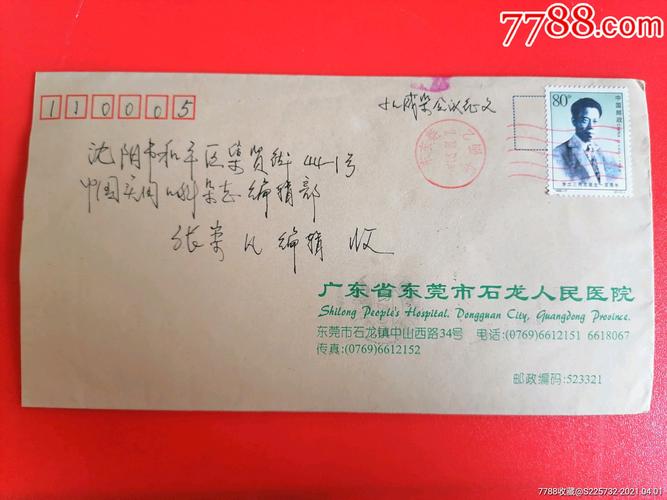 7788.com
110005
沈阳市和平区
44-1号
中国实用 杂志编辑部
张 凡 编辑 收
会议征文
80分
中国邮政
广东省东莞市石龙人民医院
Shilong People's Hospital. Dongguan City, Guangdong Province.
东莞市石龙镇中山西路34号 电话:(0769)6612151 6618067
传真:(0769)6612152
邮政编码:523321
7788收藏@S225732-2021.04.01